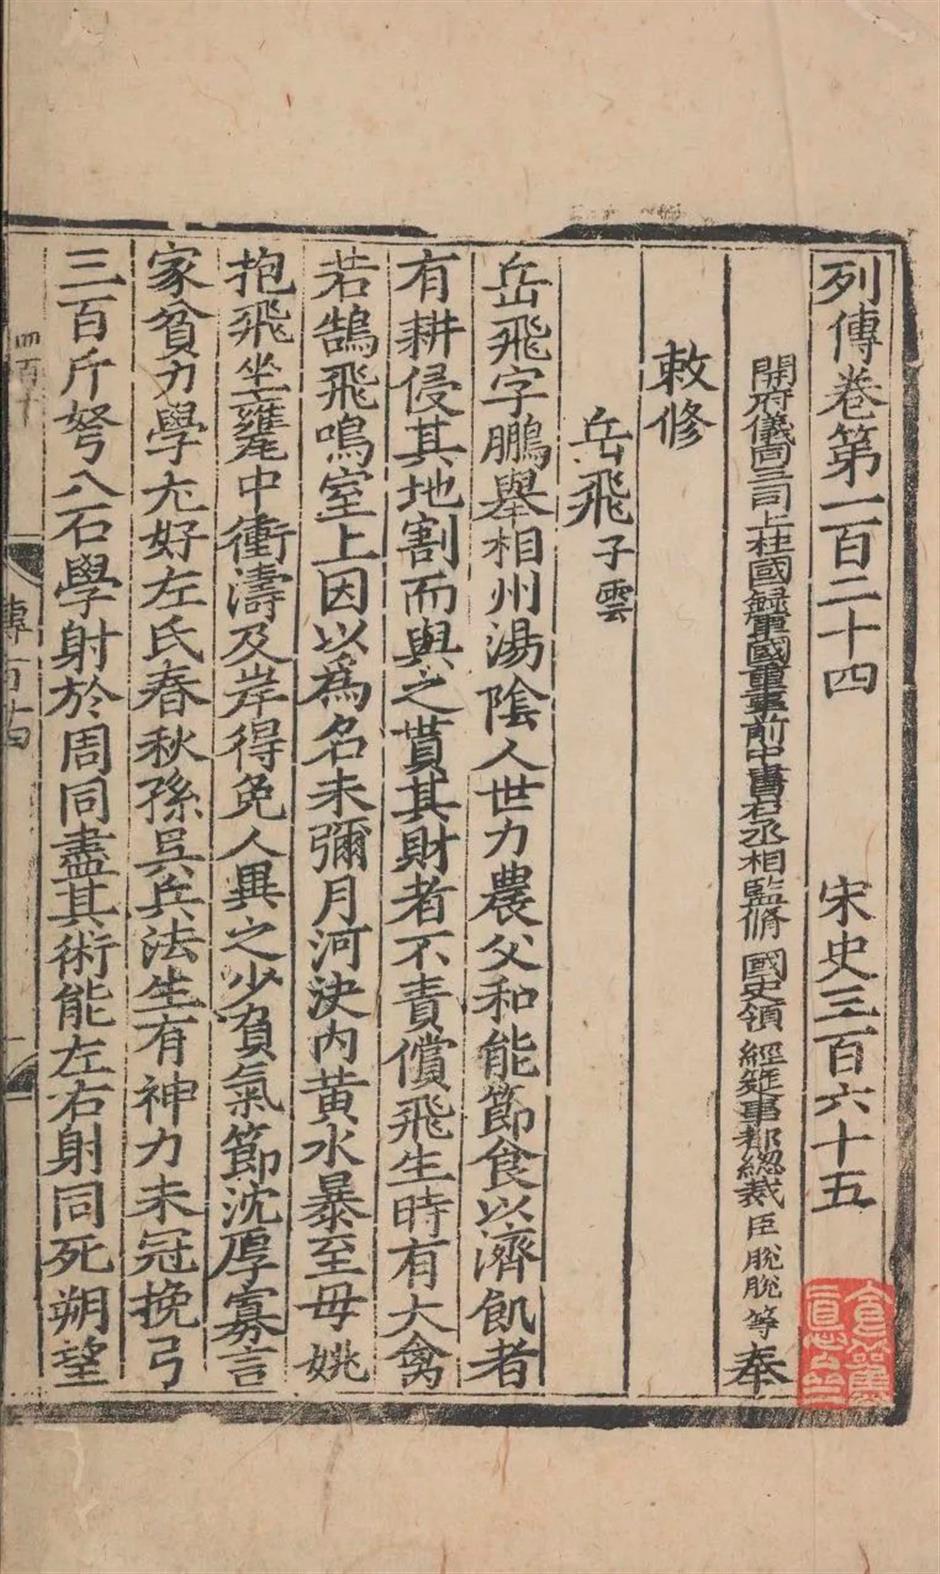 列傳卷第一百二十四 宋史三百六十五
開府儀同三司上柱國録軍國重事前中書右丞相監脩 國史領 經筵事都總裁臣脫脫等奉
敕修
岳飛 子雲
岳飛字鵬舉相州湯陰人世力農父和能節食以濟飢者
有耕侵其地割而與之貰其財者不責償飛生時有大禽
若鵠飛鳴室上因以爲名未彌月河決内黄水暴至母姚
抱飛坐甕中衝濤及岸得免人異之少負氣節沈厚寡言
家貧力學尤好左氏春秋孫吳兵法生有神力未冠挽弓
三百斤弩八石學射於周同盡其術能左右射同死朔望